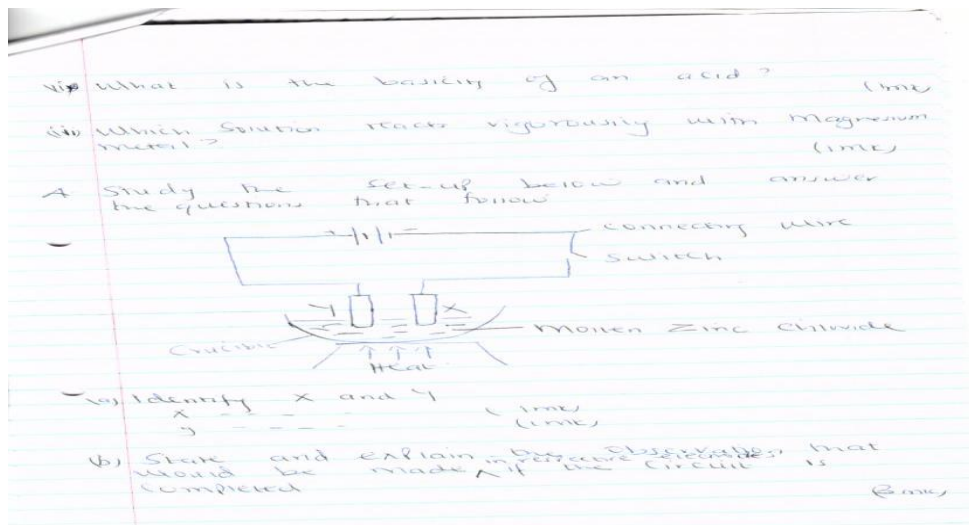 vii) What is the basicity of an acid?
(1mk)
viii) Which solution reacts vigorously with magnesium
metal?
(1mk)
4 Study the set-up below and answer
the questions that follow
+ -
connecting wire
switch
Y X
Molten Zinc chloride
Crucible
Heat
(a) Identify X and Y
X - - - - (1mk)
y - - - - (1mk)
(b) State and explain the observation that
would be made ^ in respective electrodes if the circuit is
completed
(3mk)